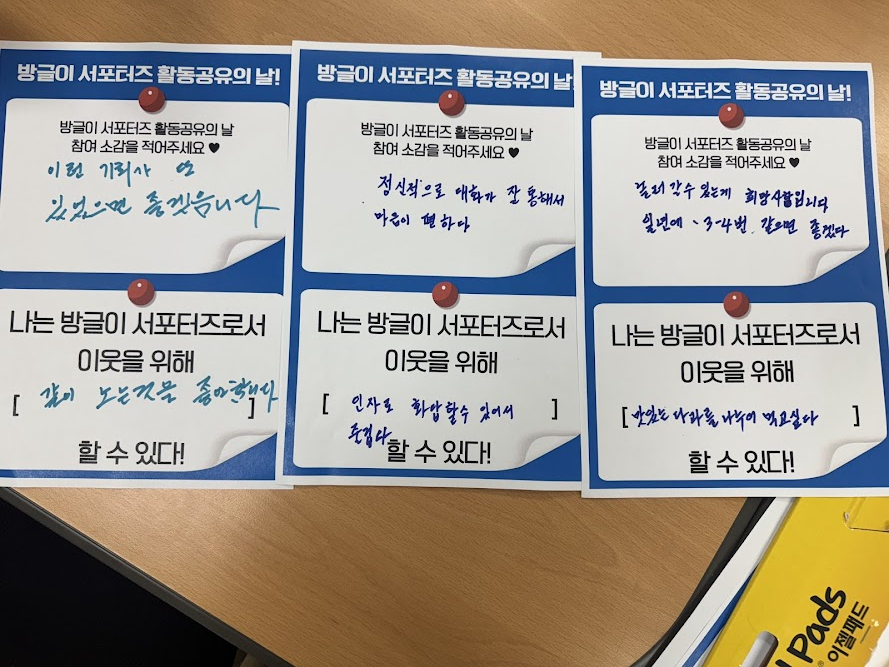 방글이 서포터즈 활동공유의 날!
방글이 서포터즈 활동공유의 날
참여 소감을 적어주세요 ♥
이런 기회가 또
있었으면 좋겠읍니다
나는 방글이 서포터즈로서
이웃을 위해
[ 같이 노는것을 좋아합니다 ]
할 수 있다!
방글이 서포터즈 활동공유의 날
방글이 서포터즈 활동공유의 날
참여 소감을 적어주세요 ♥
정신적으로 대화가 잘 통해서
마음이 편하다
나는 방글이 서포터즈로서
이웃을 위해
[ 화합할수 있어서 ]
즐겁다
할 수 있다!
방글이 서포터즈 활동공유의 날!
방글이 서포터즈 활동공유의 날
참여 소감을 적어주세요 ♥
갈수 있는게 희망사항입니다
일년에 3-4번 같으면 좋겠다
나는 방글이 서포터즈로서
이웃을 위해
[ 맛있는 나누어 먹고싶다 ]
할 수 있다!
Pads
이젤패드